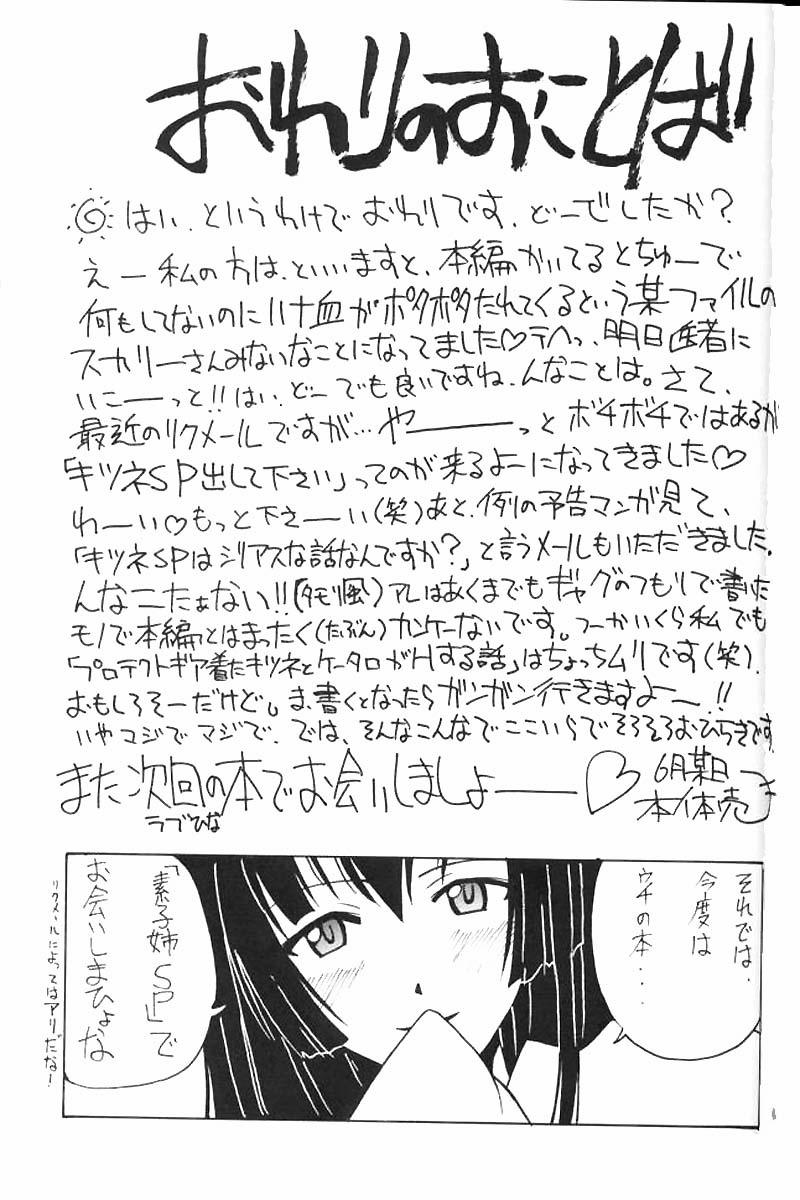 おわりのおことば
はい、というわけでおわりです。どーでしたか?
えー私の方は、といいますと、本編かいてるとちゅーで
何もしてないのにハナ血がポタポタたれてくるという某ファイルの
スカリーさんみないなことになってました♡テヘっ、明日医者に
いこーーっと!!はい、どーでも良いですね、んなことは。さて、
最近のリクメールですが…やーーーっとボチボチではあるが
「キツネSP出して下さい」ってのが来るよーになってきました♡
わーい♡もっと下さーい(笑)あと、例の予告マンガ見て、
「キツネSPはシリアスな話なんですか?」と言うメールもいただきました。
んなこたぁない!!(タモリ風)アレはあくまでもギャグのつもりで書いた
モノで本編とはまったく(たぶん)カンケーないです。つーかいくら私でも
「プロテクトギア着たキツネとケータロがHする話」はちょっちムリです(笑)。
おもしろそーだけど。ま、書くとなったらガンガン行きますよー!!
いやマジでマジで。では、そんなこんなでここいらでそろそろおひらきです
また次回の本でお会いしましょーーー♡
ラブひな
6月某日
本体売
それでは、
今度は
ウチの本...
「素子姉SP」で
お会いしまひょな
リクメールによってはアリだな!